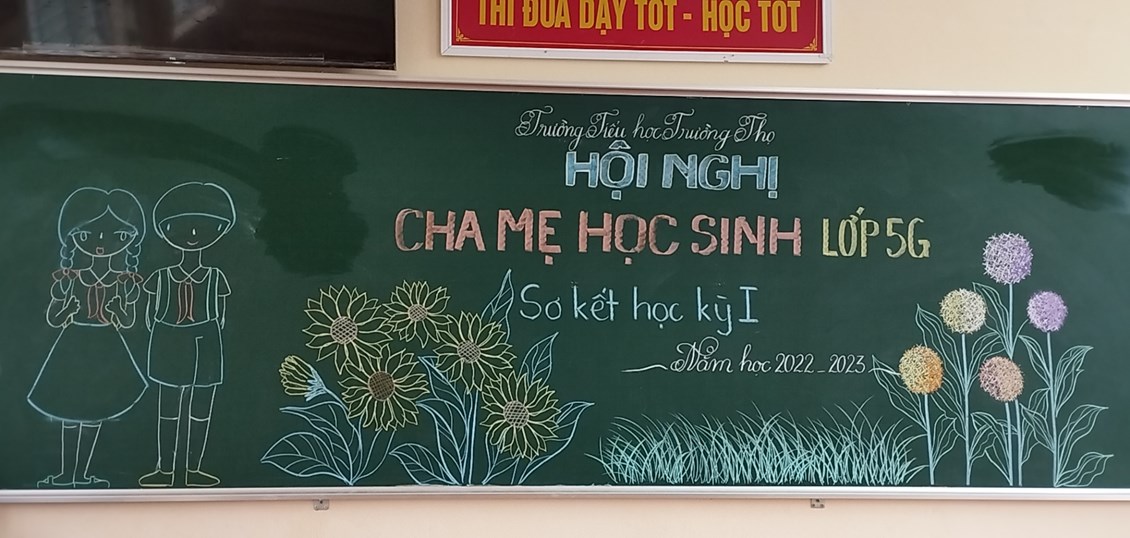 THI ĐUA DẠY TỐT - HỌC TỐT
Trường Tiểu học Trường Thọ
HỘI NGHỊ
CHA MẸ HỌC SINH LỚP 5G
Sơ kết học kỳ I
Năm học 2022 - 2023